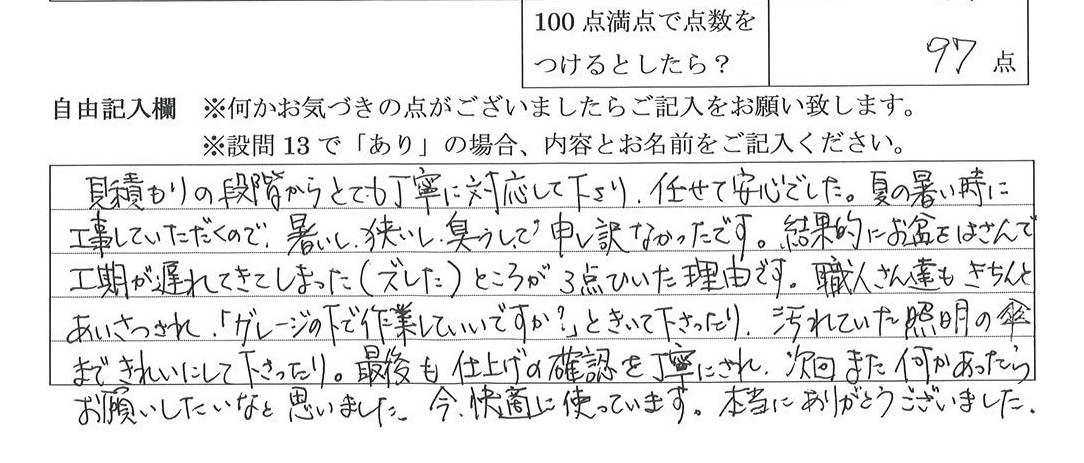 100 点満点で点数を
つけるとしたら？
97 点
自由記入欄 ※何かお気づきの点がございましたらご記入をお願い致します。
※設問 13 で「あり」の場合、内容とお名前をご記入ください。
見積もりの段階からとても丁寧に対応して下さり、任せて安心でした。夏の暑い時に
工事していただくので、暑いし、狭いし、臭うしで申し訳なかったです。結果的にお盆をはさんで
工期が遅れてきてしまった(ズレた)ところが3点ひいた理由です。職人さん達もきちんと
あいさつされ、「ガレージの下で作業していいですか？」ときいて下さったり、汚れていた照明の傘
まできれいにして下さったり。最後も仕上げの確認を丁寧にされ、次回また何かあったら
お願いしたいなと思いました。今、快適に使っています。本当にありがとうございました。